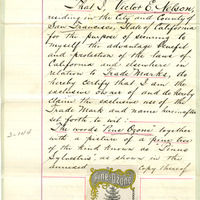 That I, Victor E. Nelson,
residing in the City and County of
San Francisco, State of California
for the purpose of securing to
myself the advantage benefit
and protection of the laws of
California and elsewhere in
relation to Trade Marks, do
hereby certify that I am the
exclusive owner of and hereby
claim the exclusive use of the
Trade Mark and name hereinafter
set forth, to wit:-
The words "Pine Ozone" together
with a picture of a pine tree
of the kind known as "Pinus
Sylvestris", as shown in the
annexed copy thereof
PINE-OZONE